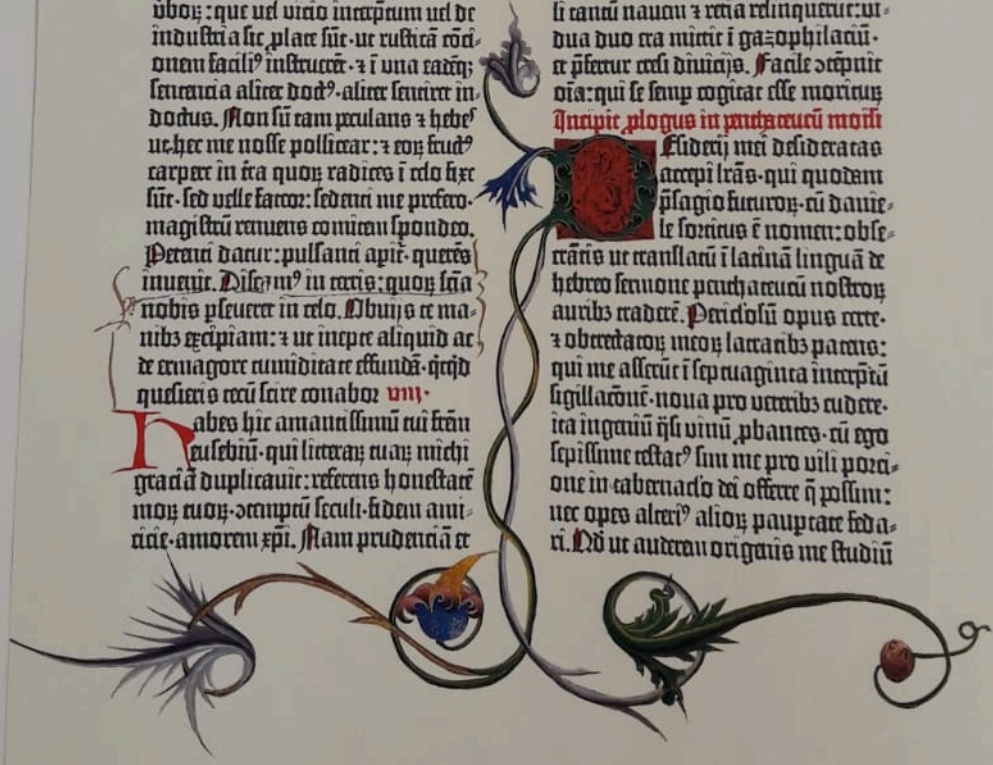 uboꝝ: que uel vicio interp̄tum uel de
industria sic place sūt·ut rusticā cōci-
onem faciliꝰ instruerēt·⁊ ī vna eadēqȝ
sentencia aliter doctꝰ·aliter sentiret in-
doctus. Non sū tam petulans ⁊ hebeˢ
ut hec me nosse pollicear: ⁊ eoꝝ fructꝰ
carpere in t̄ra quoꝝ radices ī celo fixe
sūt·sed velle fateor: sedenti me prefero·
magistrū renuens comitem spondeo.
Petenti datur: pulsanti apit̄· querēs
inuenit. Discamꝰ in terris: quoꝝ sc̄ia
nobis pseueret in celo. Obuijs te ma-
nibȝ excipiam: ⁊ ut inepte aliquid ac
de ermagore tumiditate effundā·q̇cq̇d
quesieris tecū scire conabor viij·
Habes hic amantissimū tui frēm
eusebiū·qui litteraꝝ tuaꝝ michi
graciā duplicauit: referens honestatē
moꝝ tuoꝝ·ↄtemptū seculi·fidem ami-
citie·amorem xp̄i. Nam prudenciā et
li tantū nauem ⁊ retia relinquerūt: vi-
dua duo era mittit ī gazophilaciū·
et p̄fertur cresi diuicijs. Facile ↄtēpnit
oīa: qui se semp cogitat esse moriturꝝ
Incipit ꝓlogus in penthateucū moisi
Desiderij mei desideratas
accepi lr̄as·qui quodam
p̄sagio futuroꝝ·cū danie-
le sortitus ē nomen: obse-
crātis ut translatū ī latinā linguā de
hebreo sermone penthateucū nostroꝝ
auribȝ traderē. Periclosū opus certe·
⁊ obtrectatoꝝ meoꝝ latratibȝ patens:
qui me asserūt ī septuaginta interp̄tū
sigillatōnē·noua pro veteribȝ cudere·
ita ingeniū q̄si vinū ꝓbantes·cū ego
sepissime testatꝰ sim me pro vili porci-
one in tabernaclo dei offerre q̄ possim:
nec opes alteriꝰ alioꝝ paupertate feda-
ri. Nō ut auderem origenis me studiū